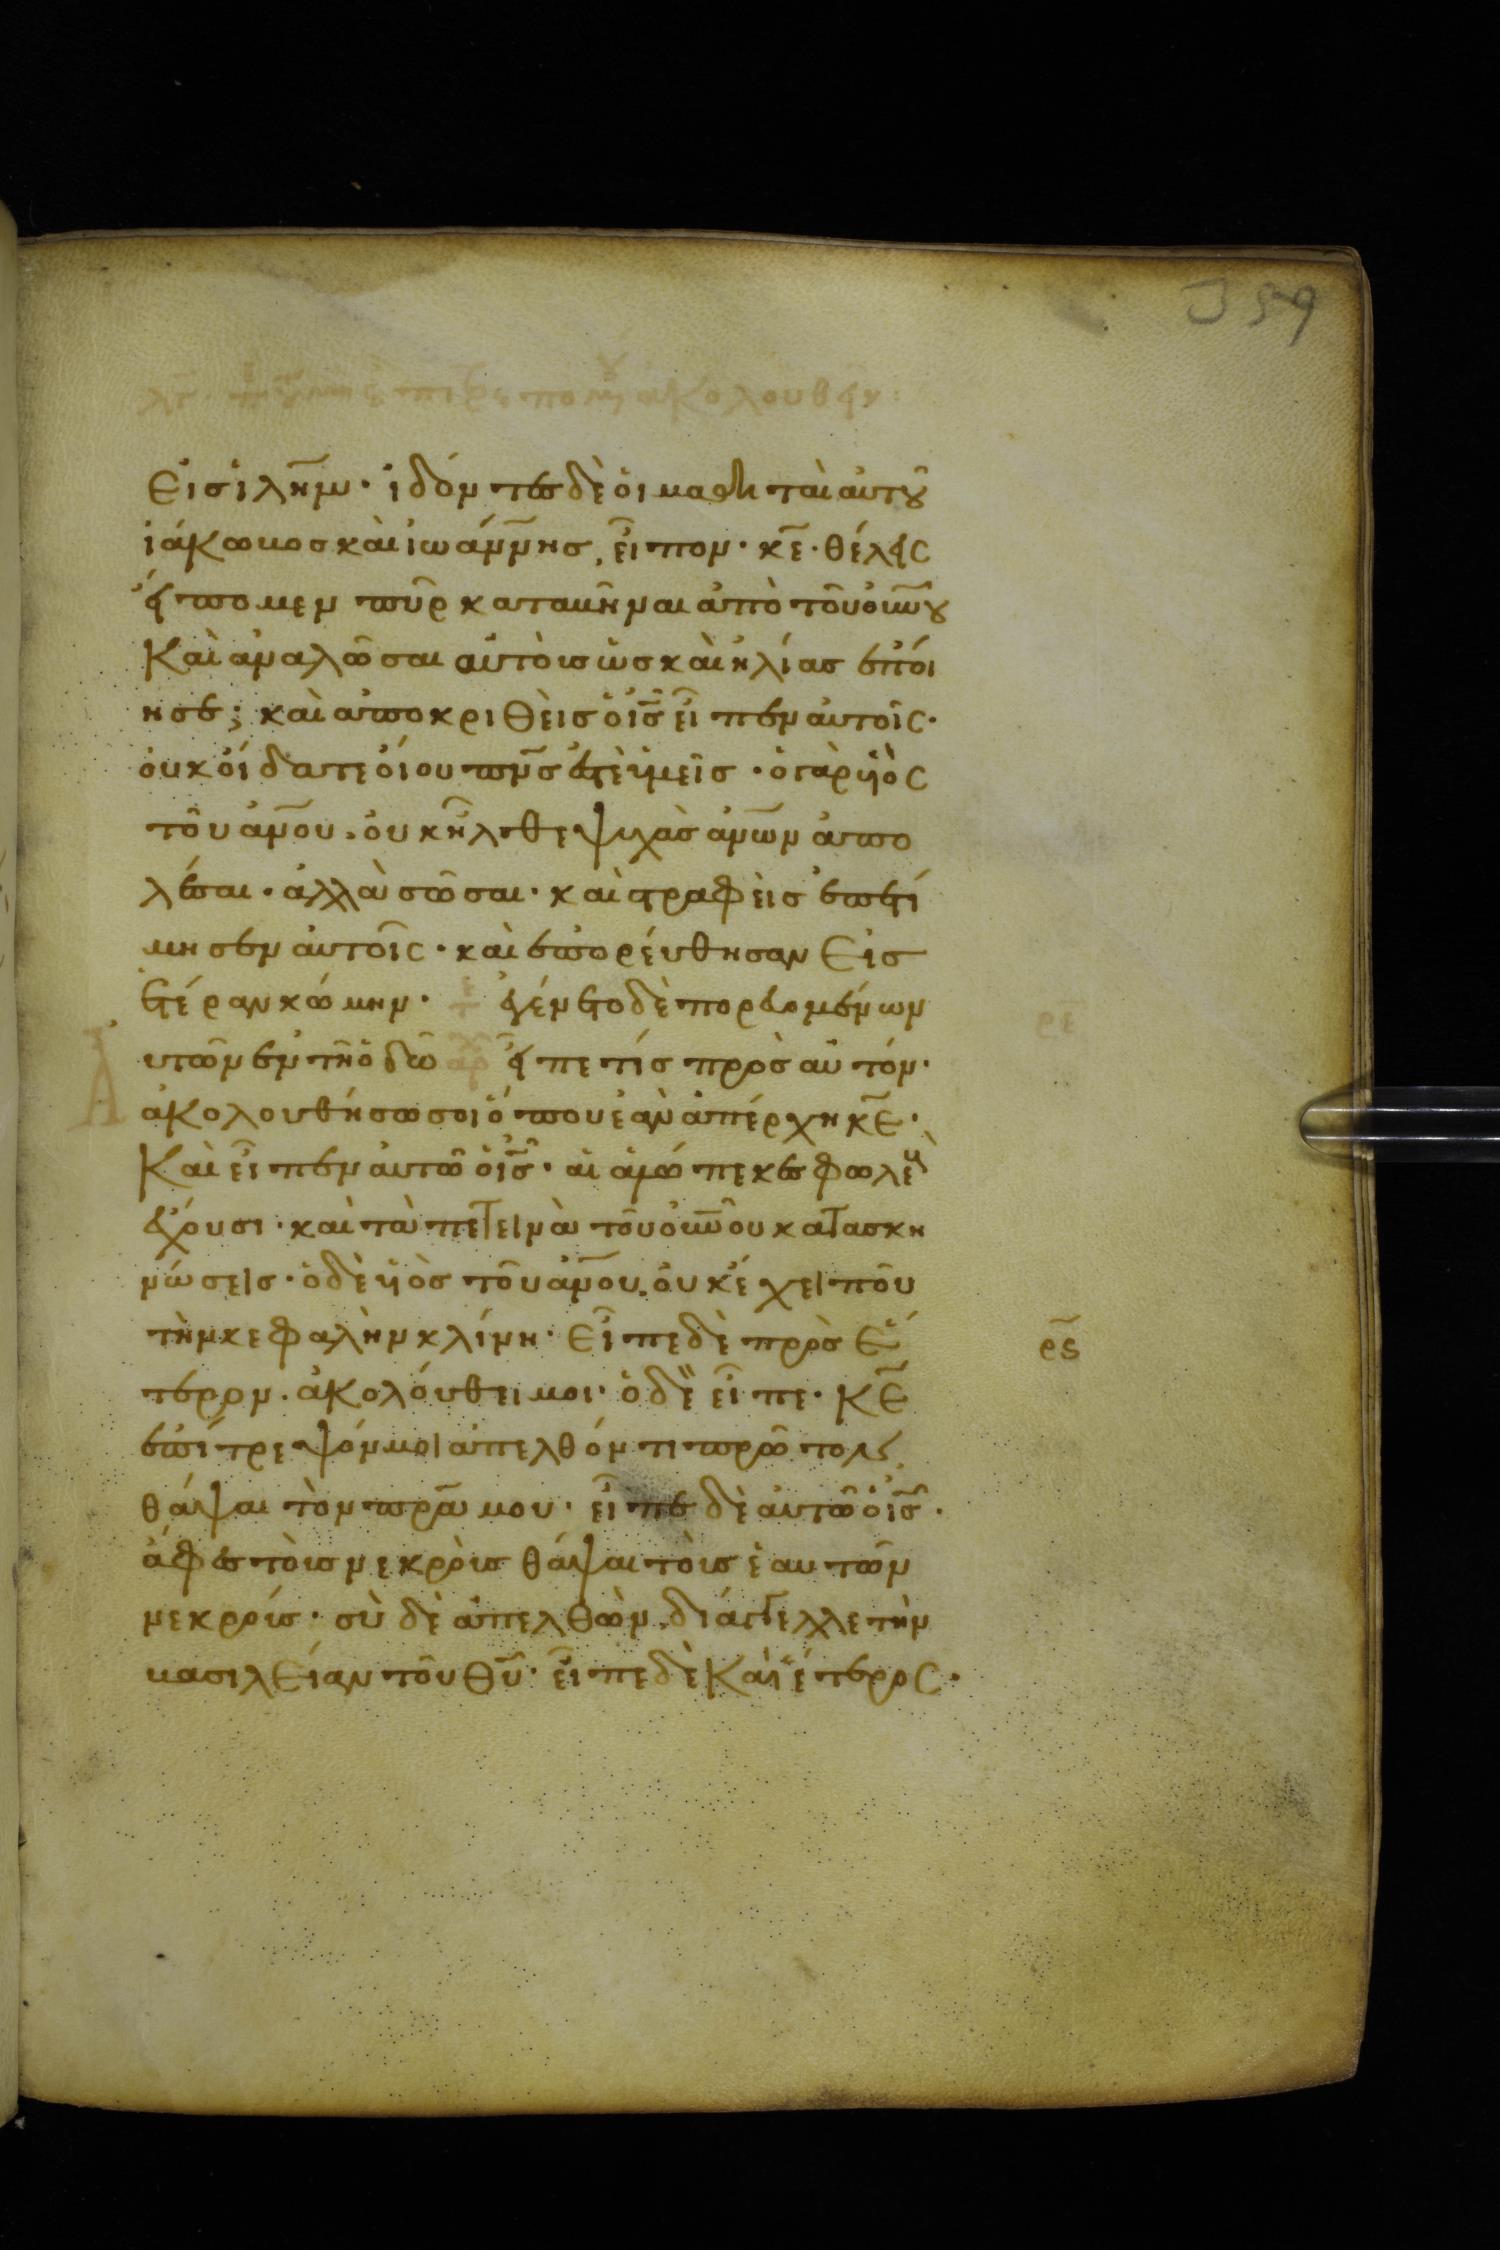 359
ἀκολουθεῖν:
Εἰς ἰλημ̅· ἰδόντες δὲ οἱ μαθηταὶ αὐτοῦ
ἰάκωβος καὶ ἰωάννης, εἶπον· κε̅· θέλεις
εἴπομεν πῦρ καταβῆναι ἀπὸ τοῦ οὐνου
Καὶ ἀναλῶσαι αὐτοὺς ὡς καὶ ἠλίας ἐποί
ησε; καὶ ἀποκριθεὶς ὁ ις̅ εἶπεν αὐτοῖς·
οὐκ οἴδατε οἵου πνς̅ ἐστὲ ὑμεῖς· ὁ γὰρ υἱὸς
τοῦ ἀνου. οὐκ ἦλθε ψυχὰς ἀνων ἀπο
λέσαι· ἀλλὰ σῶσαι· καὶ στραφεὶς ἐπετί
μησεν αὐτοῖς· καὶ ἐπορεύθησαν Εἰς
ἑτέραν κώμην· ἐγένετο δὲ πορευομένων
αυτῶν ἐν τῇ ὁδῶ εἶπε τίς πρὸς αὐτόν·
ἀκολουθήσω σοι ὅπου ἐὰν ἀπέρχη κε̅·
Καὶ εἶπεν αὐτῶ ὁ ις̅· αἱ ἀλώπεκες φωλεοὺς
ἔχουσι· καὶ τὰ πετεινὰ τοῦ οὐνου κατασκη
νώσεις· ὁ δὲ υἱὸς τοῦ ἀνου. οὐκ έχει ποῦ
τὴν κεφαλὴν κλίνη· Εἶπε δὲ πρὸς ἕ
ρς̅
τερον. ἀκολούθει μοι· ὁ δὲ εἶπε· κε̅
ἐπίτρεψόν μοι ἀπελθόντι πρῶτον
θάψαι τὸν πρα̅ μου· εἶπε δὲ αὐτῶ ὁ ις̅·
ἄφες τοὺς νεκροὺς θάψαι τοὺς ἑαυτῶν
νεκρούς· σὺ δὲ ἀπελθὼν. διάγγελλε τὴν
βασιλείαν τοῦ θυ̅· εἶπε δὲ Καὶ ἕτερος·